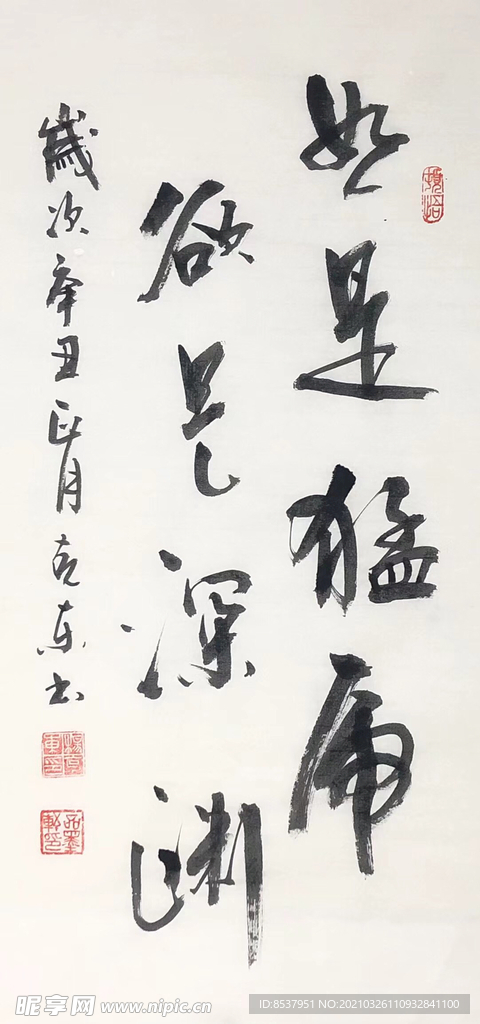 怒是猛虎
欲是深渊
歲次辛丑正月亮东书
昵享网 www.nipic.cn
ID:8537951 NO:20210326110932841100